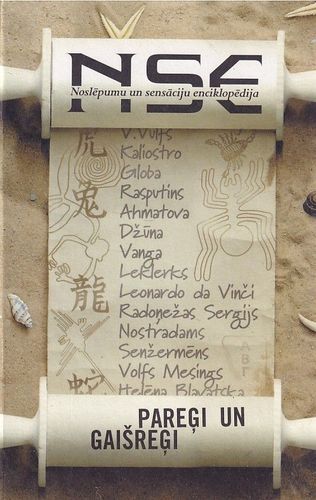 NSE
Noslēpumu un sensāciju enciklopēdija
V.Vulfs
Kaliostro
Globa
Rasputins
Ahmatova
Džūna
Vanga
Leklerks
Leonardo da Vinči
Radoņežas Sergijs
Nostradams
Senžermēns
Volfs Mesings
Helēna Blavatska
虎
兔
龍
蛇
АВГ
PAREĢI UN
GAIŠREĢI